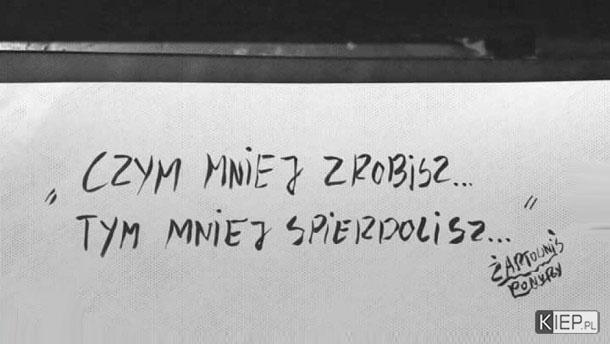 „ CZYM MNIEJ ZROBISZ...
TYM MNIEJ SPIERDOLISZ... "
ŻARTOWNIŚ
PONURY
KIEP.PL